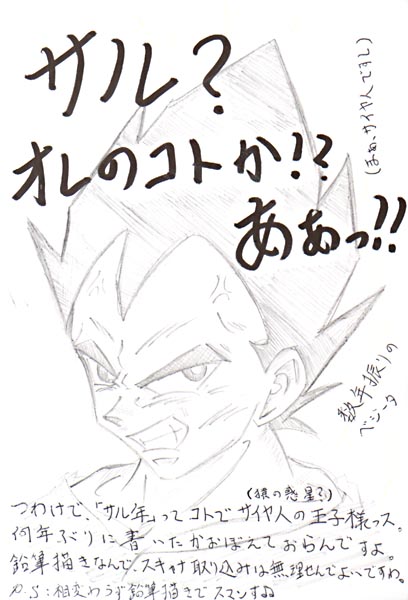 サル?
オレのコトか!?
あぁっ!!
(まぁ、サイヤ人ですし)
数年振りの
ベジータ
(猿の惑星?)
つわけで、「サル年」ってコトでサイヤ人の王子様っス。
何年ぶりに書いたかおぼえておらんですよ。
鉛筆描きなんで、スキャナ取り込みは無理せんでよいですわ。
P.S:相変わらず鉛筆描きでスマンすね